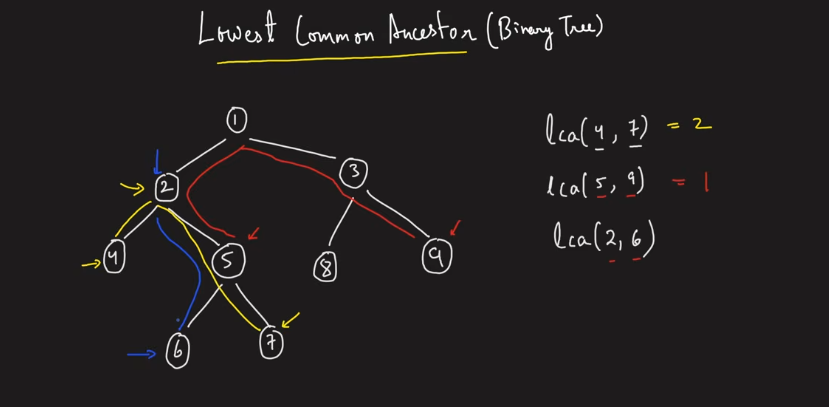 Lowest Common Ancestor (Binary Tree)
1
2
3
4
5
8
9
6
7
lca(4, 7) = 2
lca(5, 9) = 1
lca(2, 6)